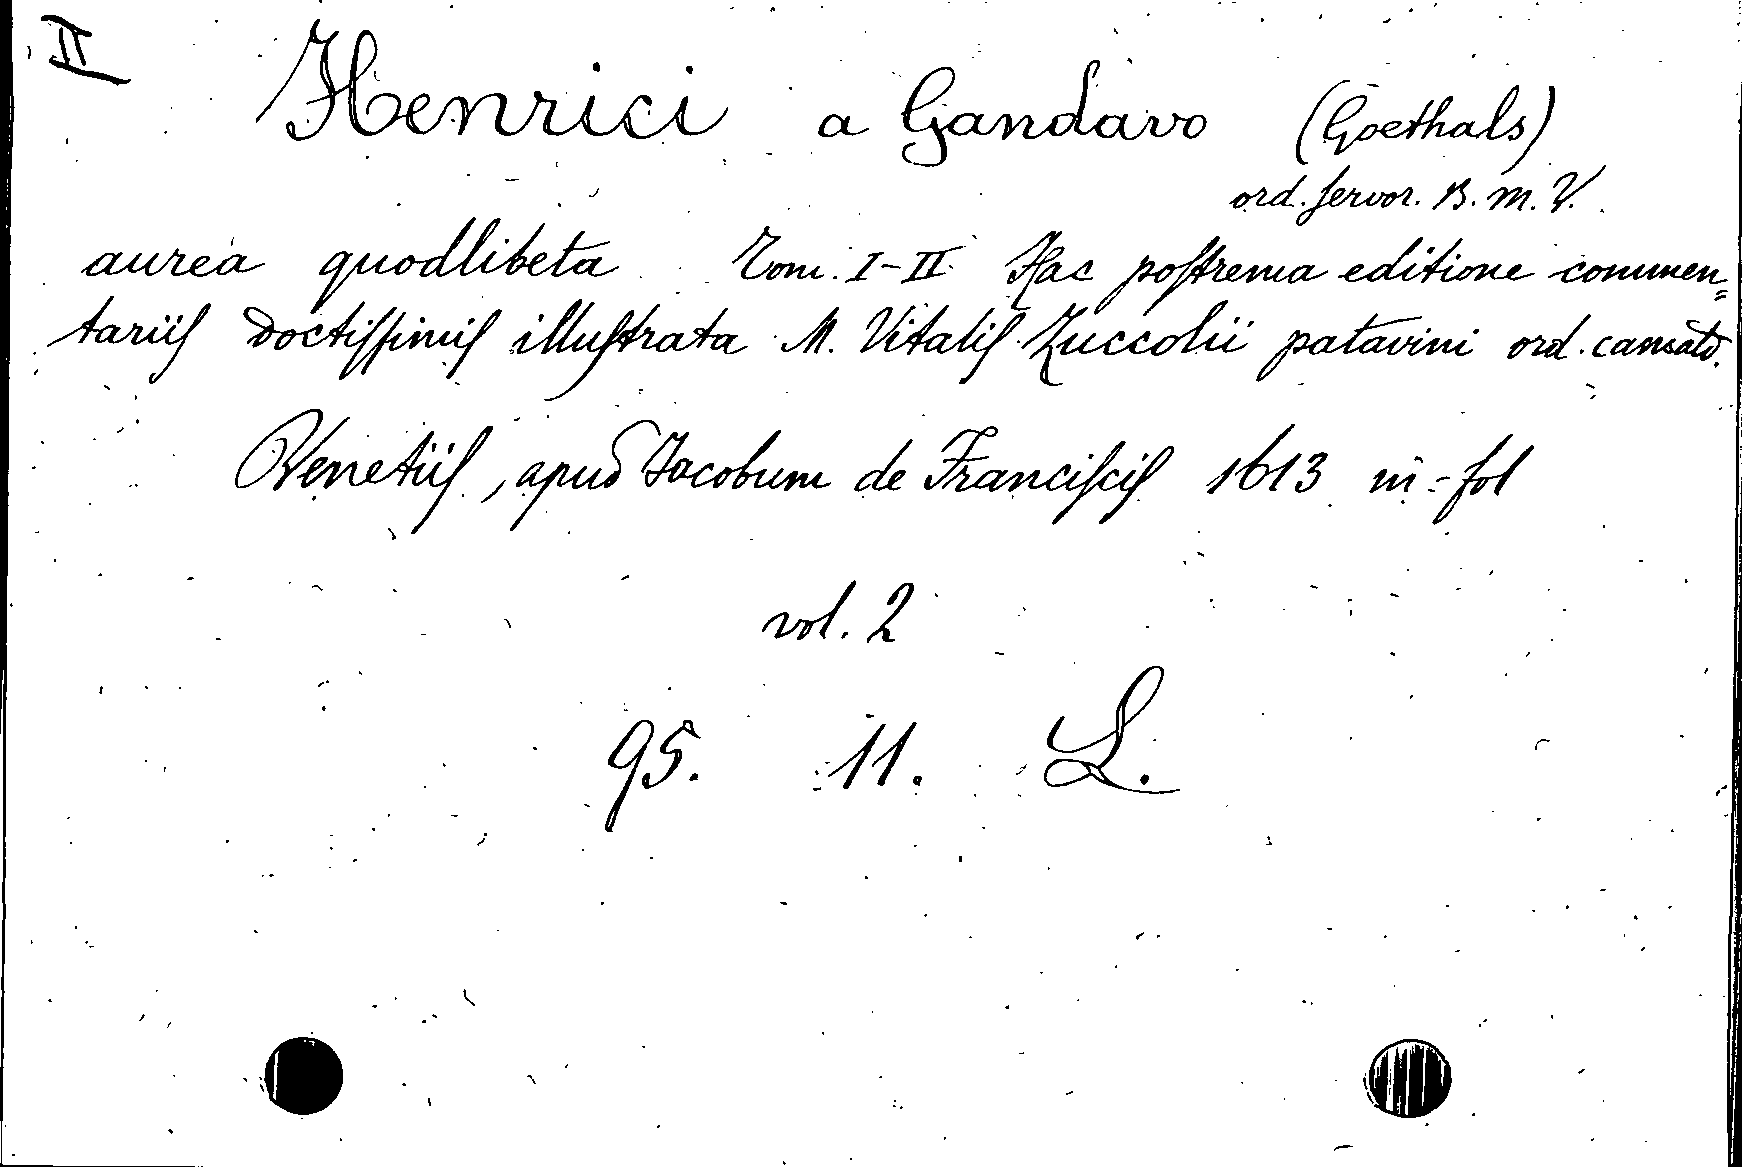 II
Henrici a Gandavo (Goethals)
ord. servor. B. M. V.
aurea quodlibeta Tom. I-II Hac poſtrema editione commen=
tariiſ doctiſſimiſ illuſtrata M. Vitaliſ Zuccolii patavini ord. camald.
Venetiiſ, apud Jacobum de Franciſciſ 1613 in=fol
vol. 2
95. 11. L.